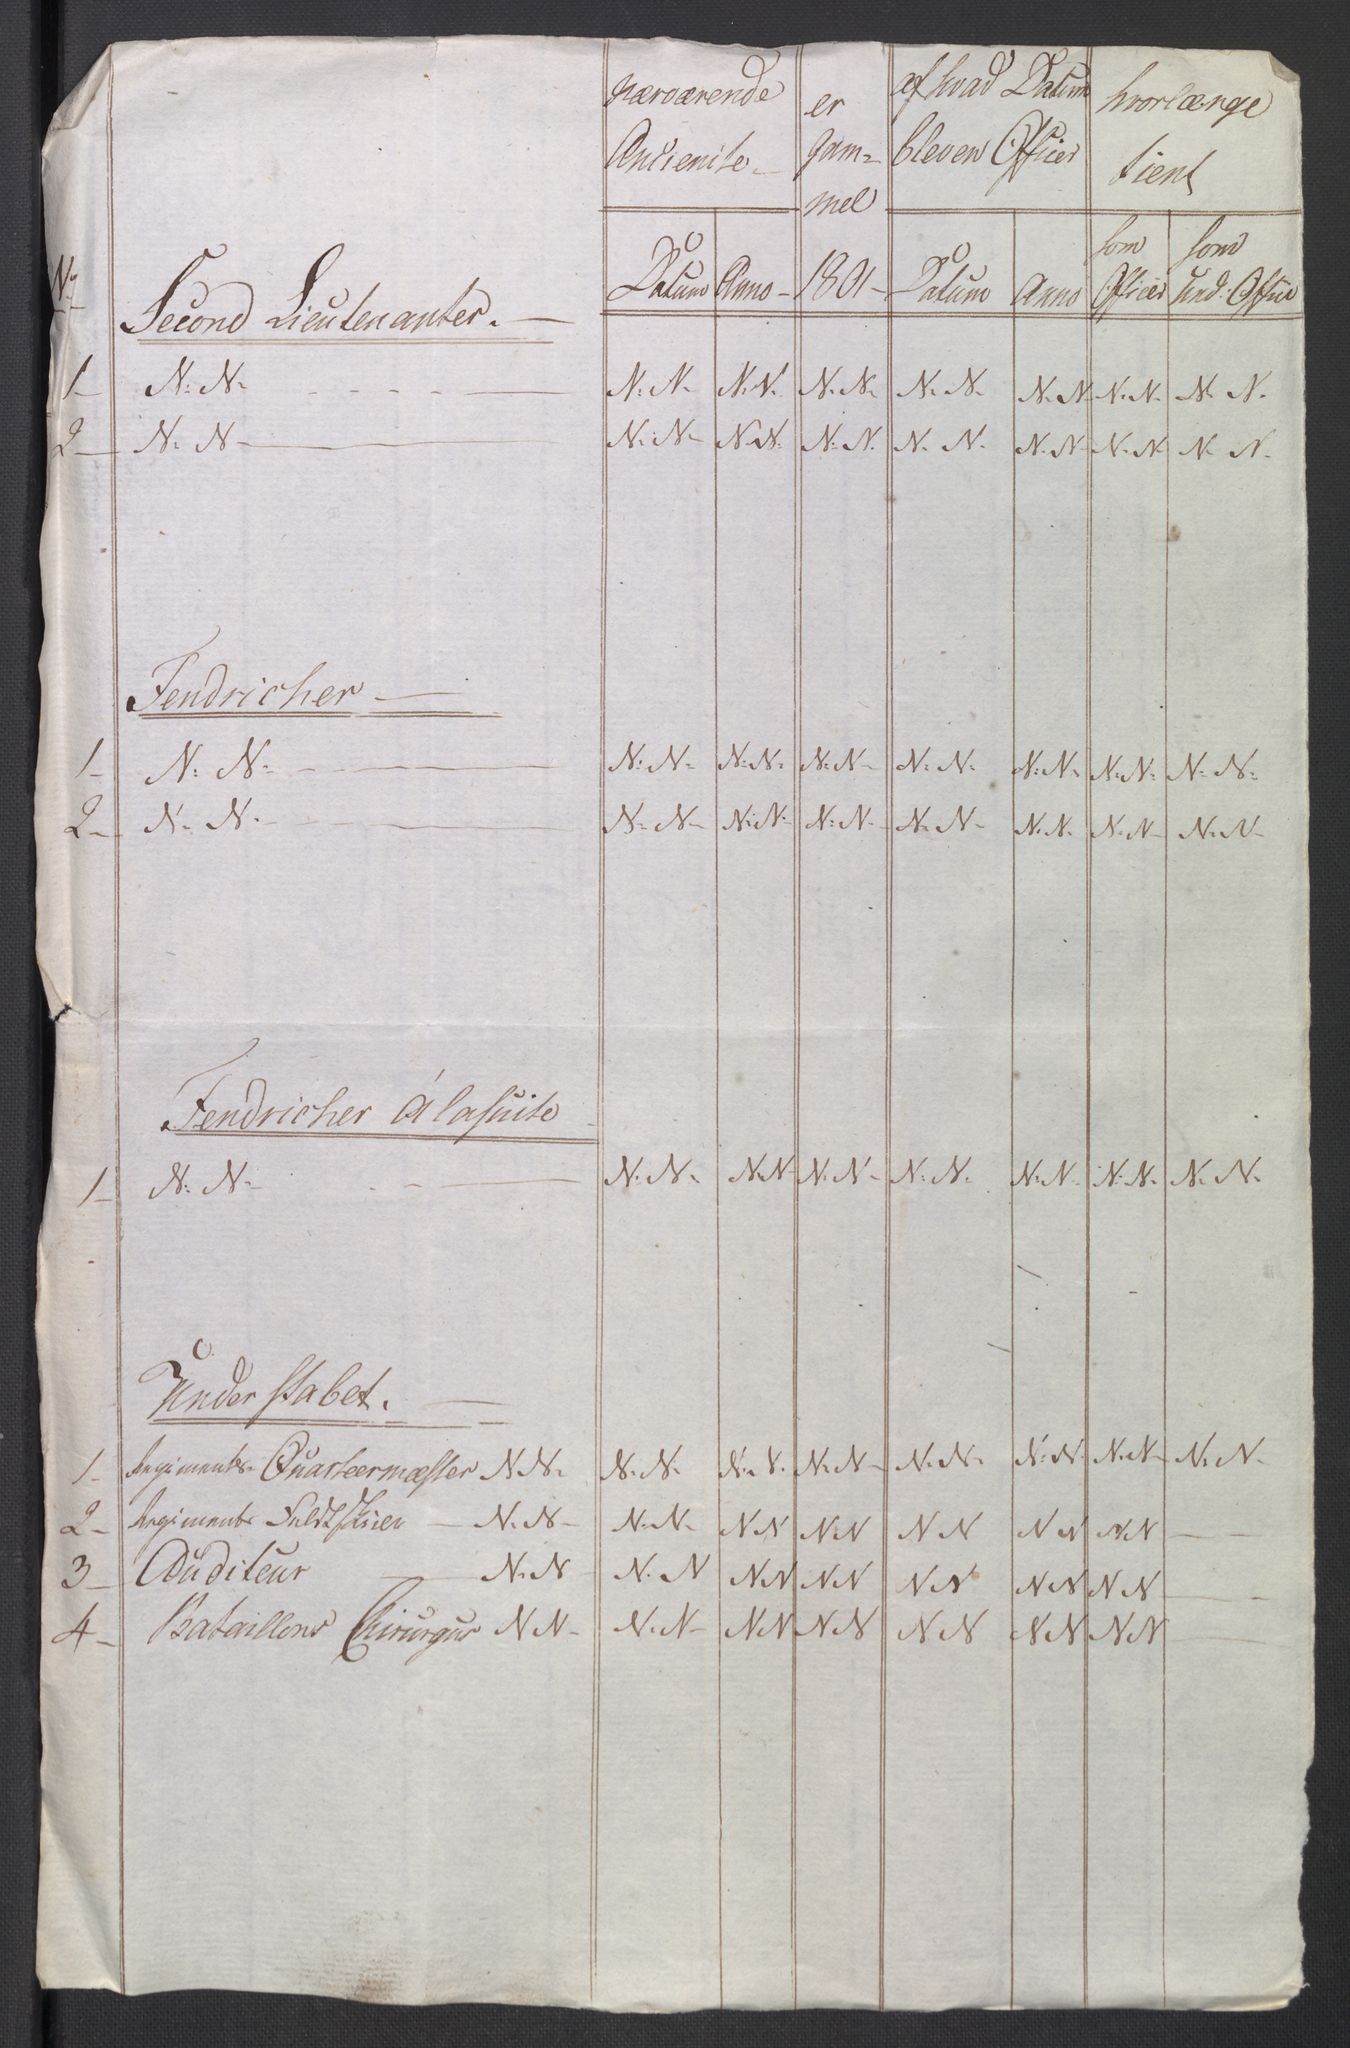 nærværende er af hvad Datum hvorlænge
Ancienite gam= bleven Officer tient
mel
som som
No Second Lieutenanter. Datum Anno 1801 Datum Anno Officer Und: Officir
1 N: N N: N N: N N: N N: N N: N N: N N: N
2 N: N N: N N: N N: N N: N N: N N: N N: N
Fendricher
1 N: N: N: N N: N N: N N: N N: N N: N N: N
2 N: N: N: N N: N N: N N: N N: N N: N N: N
Fendricher á la suite
1 N: N N: N N: N N: N N: N N: N N: N N: N
Under Stabet.
1 Regiments Quarteermæster N N N: N N: N N: N N: N N: N N: N N: N
2 Regiments N: N N: N N N N N N N N N N N
3 Auditeur N: N N: N N N N N N N N N N N
4 Bataillons Chirurgus N N N: N N N N N N N N N N N